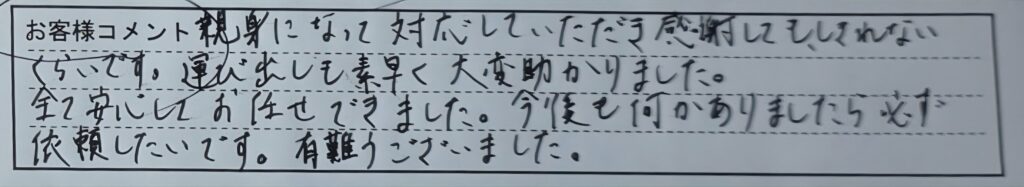 お客様コメント 親身になって対応していただき感謝してもしきれない
くらいです。運び出しも素早く大変助かりました。
全て安心してお任せできました。今後も何かありましたら必ず
依頼したいです。有難うございました。